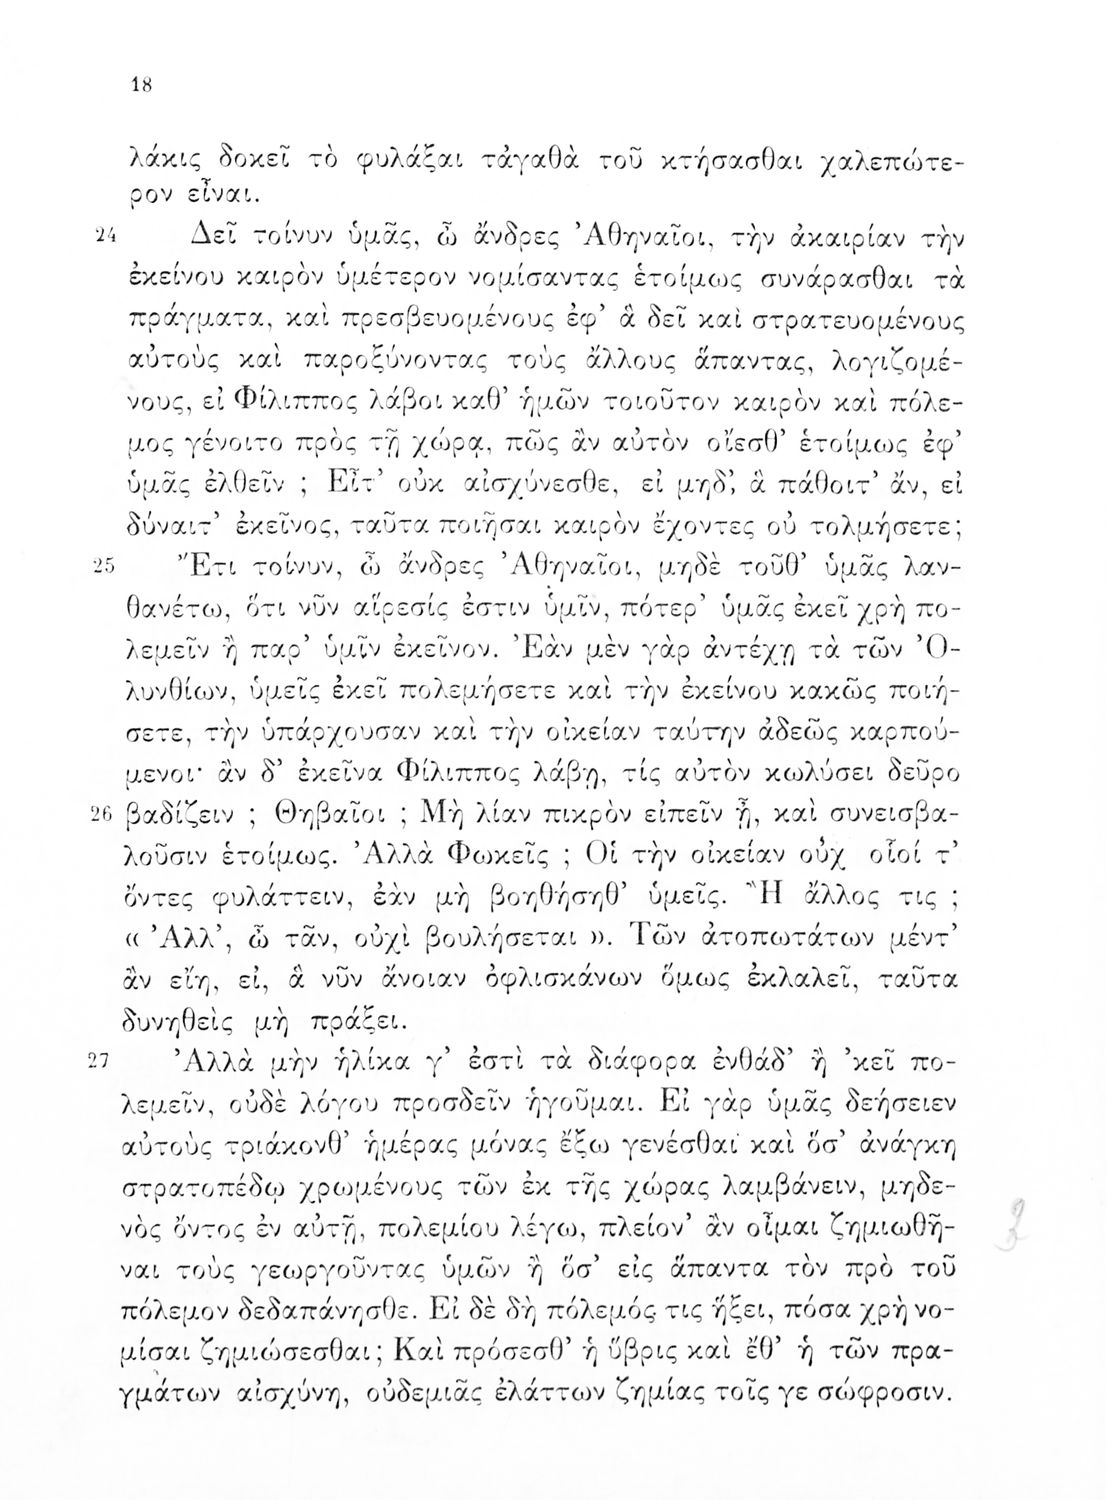 18
λάκις δοκεῖ τὸ φυλάξαι τἀγαθὰ τοῦ κτήσασθαι χαλεπώτε-
ρον εἶναι.
24 Δεῖ τοίνυν ὑμᾶς, ὦ ἄνδρες Ἀθηναῖοι, τὴν ἀκαιρίαν τὴν
ἐκείνου καιρὸν ὑμέτερον νομίσαντας ἑτοίμως συνάρασθαι τὰ
πράγματα, καὶ πρεσβευομένους ἐφ’ ἃ δεῖ καὶ στρατευομένους
αὐτοὺς καὶ παροξύνοντας τοὺς ἄλλους ἅπαντας, λογιζομέ-
νους, εἰ Φίλιππος λάβοι καθ’ ἡμῶν τοιοῦτον καιρὸν καὶ πόλε-
μος γένοιτο πρὸς τῇ χώρᾳ, πῶς ἂν αὐτὸν οἴεσθ’ ἑτοίμως ἐφ’
ὑμᾶς ἐλθεῖν ; Εἶτ’ οὐκ αἰσχύνεσθε, εἰ μηδ’, ἃ πάθοιτ’ ἄν, εἰ
δύναιτ’ ἐκεῖνος, ταῦτα ποιῆσαι καιρὸν ἔχοντες οὐ τολμήσετε;
25 Ἔτι τοίνυν, ὦ ἄνδρες Ἀθηναῖοι, μηδὲ τοῦθ’ ὑμᾶς λαν-
θανέτω, ὅτι νῦν αἵρεσίς ἐστιν ὑμῖν, πότερ’ ὑμᾶς ἐκεῖ χρὴ πο-
λεμεῖν ἢ παρ’ ὑμῖν ἐκεῖνον. Ἐὰν μὲν γὰρ ἀντέχῃ τὰ τῶν Ὀ-
λυνθίων, ὑμεῖς ἐκεῖ πολεμήσετε καὶ τὴν ἐκείνου κακῶς ποιή-
σετε, τὴν ὑπάρχουσαν καὶ τὴν οἰκείαν ταύτην ἀδεῶς καρπού-
μενοι· ἂν δ’ ἐκεῖνα Φίλιππος λάβῃ, τίς αὐτὸν κωλύσει δεῦρο
26 βαδίζειν ; Θηβαῖοι ; Μὴ λίαν πικρὸν εἰπεῖν ᾖ, καὶ συνεισβα-
λοῦσιν ἑτοίμως. Ἀλλὰ Φωκεῖς ; Οἱ τὴν οἰκείαν οὐχ οἷοί τ’
ὄντες φυλάττειν, ἐὰν μὴ βοηθήσηθ’ ὑμεῖς. Ἢ ἄλλος τις ;
« Ἀλλ’, ὦ τᾶν, οὐχὶ βουλήσεται ». Τῶν ἀτοπωτάτων μέντ’
ἂν εἴη, εἰ, ἃ νῦν ἄνοιαν ὀφλισκάνων ὅμως ἐκλαλεῖ, ταῦτα
δυνηθεὶς μὴ πράξει.
27 Ἀλλὰ μὴν ἡλίκα γ’ ἐστὶ τὰ διάφορα ἐνθάδ’ ἢ ’κεῖ πο-
λεμεῖν, οὐδὲ λόγου προσδεῖν ἡγοῦμαι. Εἰ γὰρ ὑμᾶς δεήσειεν
αὐτοὺς τριάκονθ’ ἡμέρας μόνας ἔξω γενέσθαι καὶ ὅσ’ ἀνάγκη
στρατοπέδῳ χρωμένους τῶν ἐκ τῆς χώρας λαμβάνειν, μηδε-
νὸς ὄντος ἐν αὐτῇ, πολεμίου λέγω, πλείον’ ἂν οἶμαι ζημιωθῆ-
ναι τοὺς γεωργοῦντας ὑμῶν ἢ ὅσ’ εἰς ἅπαντα τὸν πρὸ τοῦ
πόλεμον δεδαπάνησθε. Εἰ δὲ δὴ πόλεμός τις ἥξει, πόσα χρὴ νο-
μίσαι ζημιώσεσθαι; Καὶ πρόσεσθ’ ἡ ὕβρις καὶ ἔθ’ ἡ τῶν πρα-
γμάτων αἰσχύνη, οὐδεμιᾶς ἐλάττων ζημίας τοῖς γε σώφροσιν.